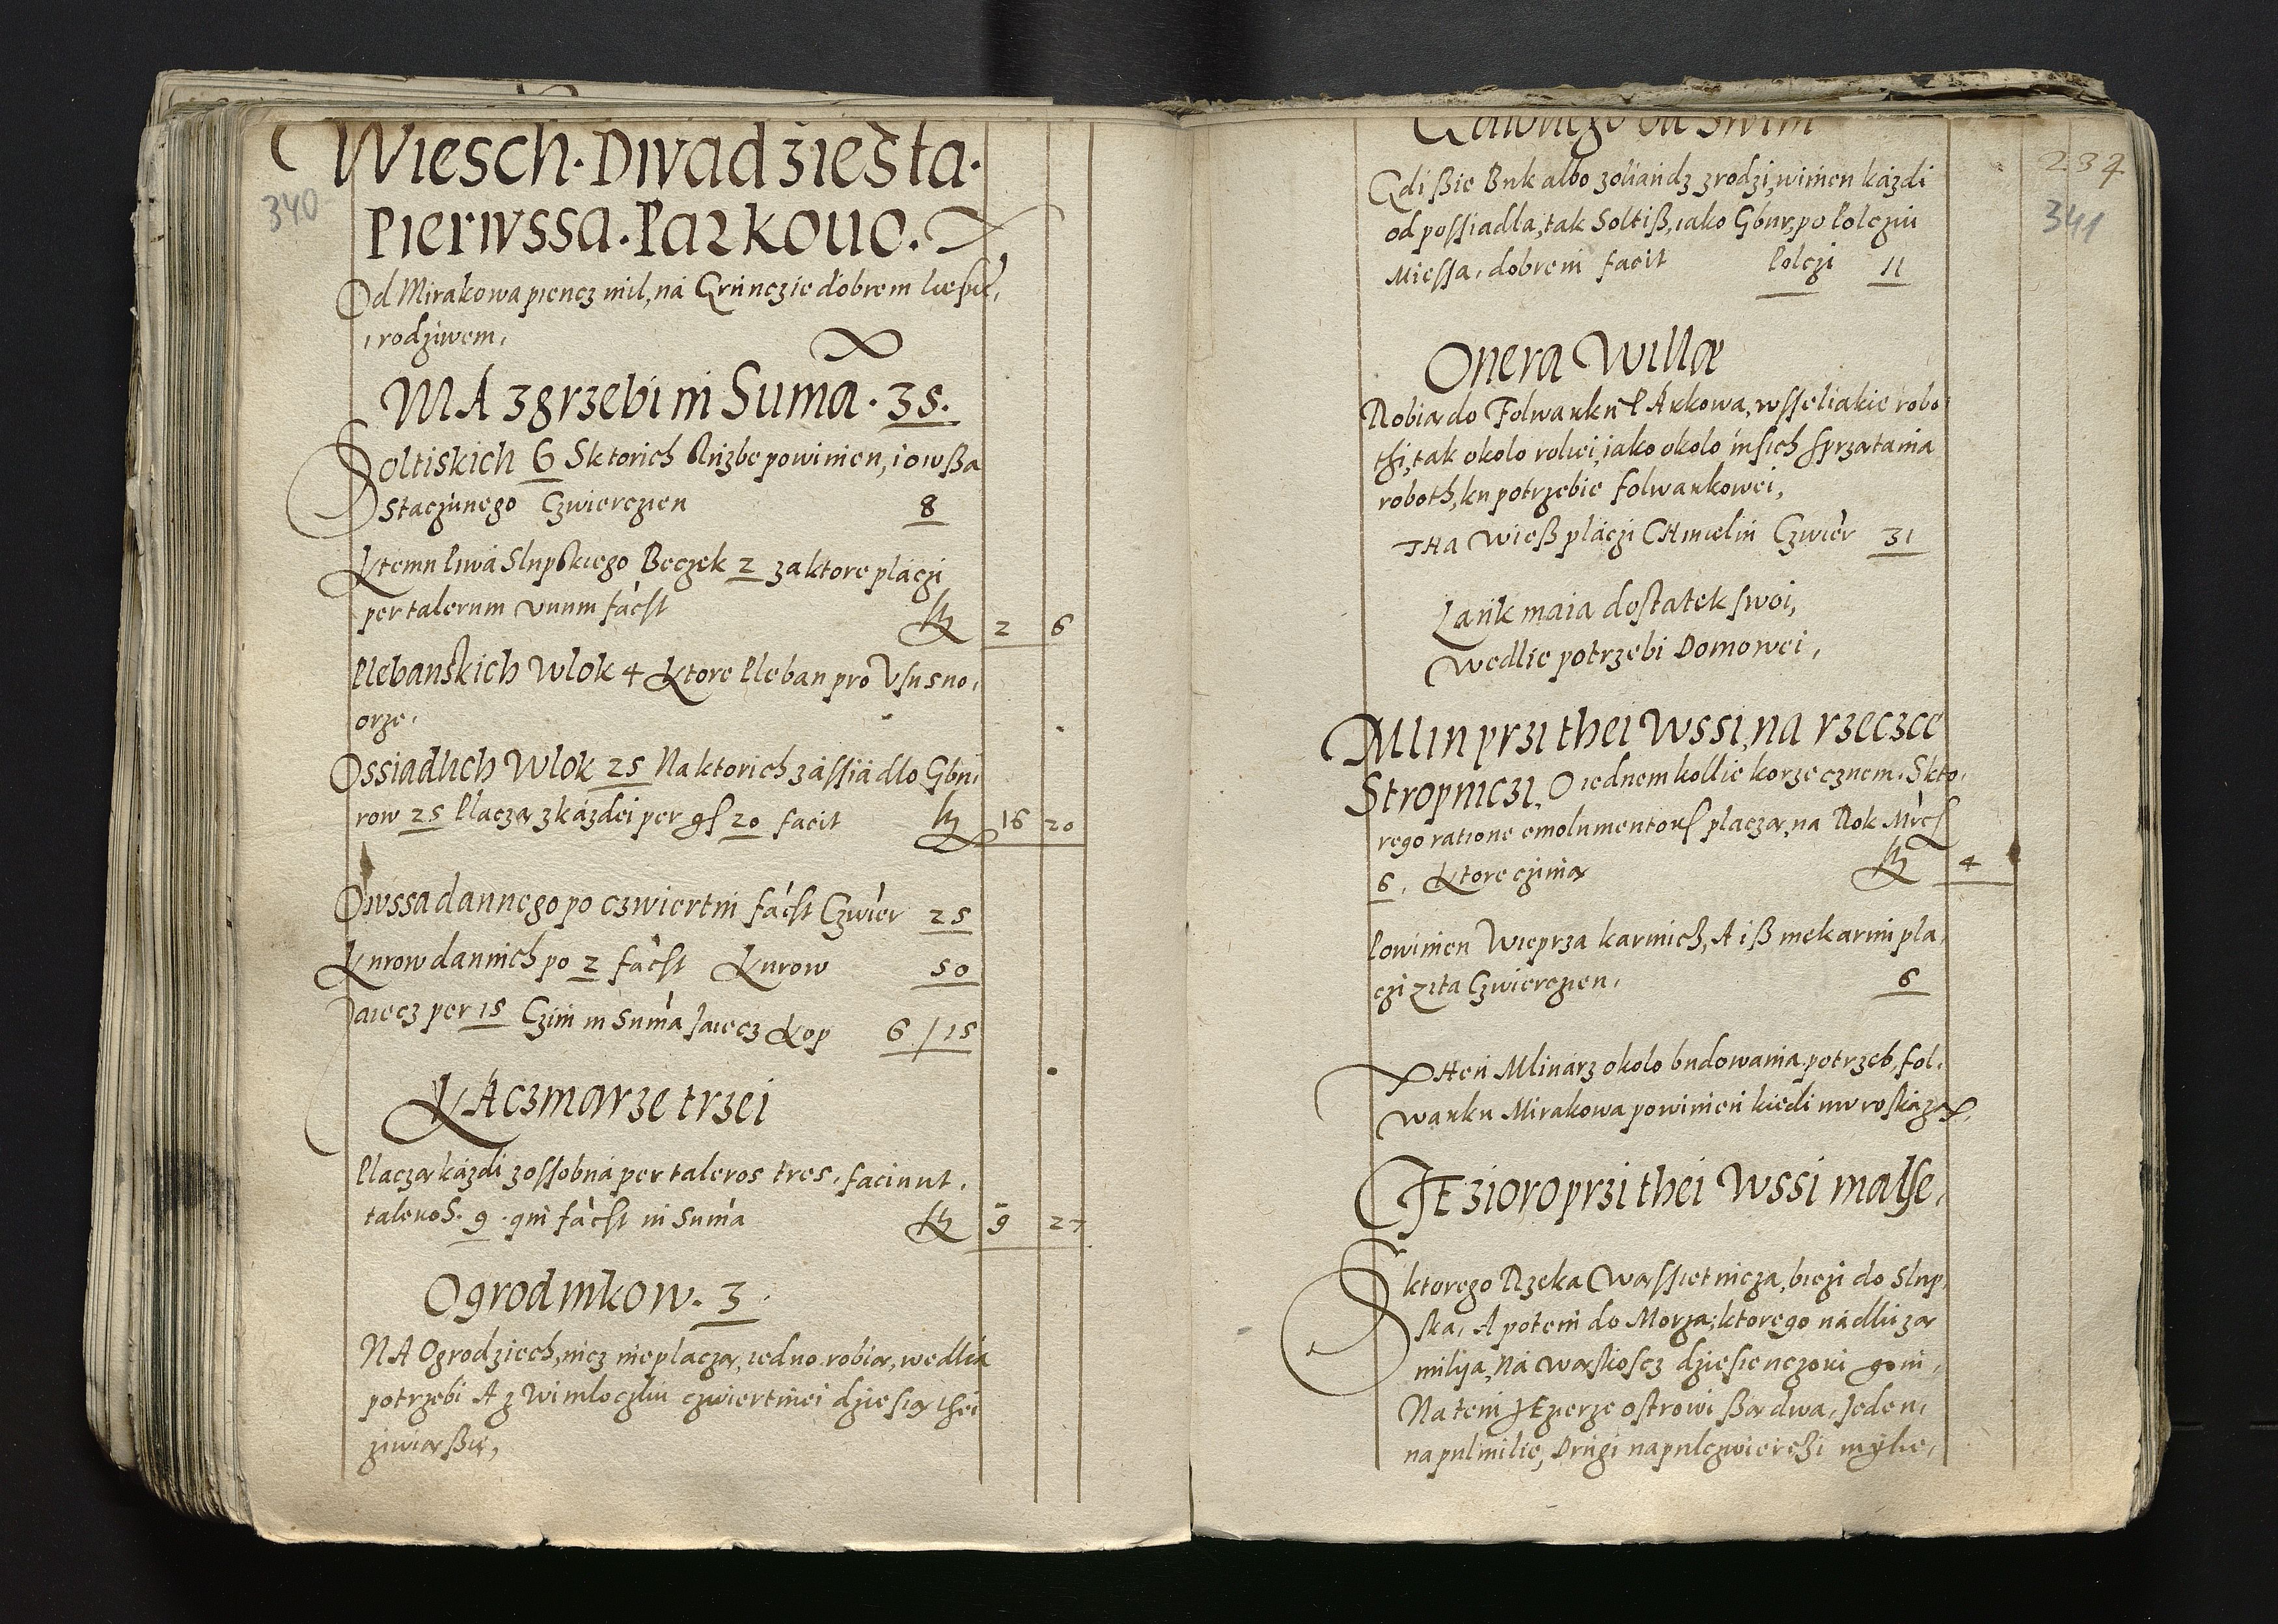 340
Wiesch. Dwadziesta.
Pierwssa. Parkouo.
Od Mirakowa piencz mil, na Grunczie dobrem
rodziwem,
MA zgrzebi in Suma. 35.
Soltiskich 6 Sktorich Sluzbe powinien, i owßa
Staczŭnego Czwierczien 8
Ktemu Piwa Slupskiego Beczek 2 za ktore placzi
per talerum vnum facst 2 6
Plebanskich Wlok 4 Ktore Pleban pro Vsu suo,
orze,
Ossiadlich Wlok 25 Na ktorich zassiadlo Gbu,
row 25 Placza z kazdei per gs 20 facit 16 20
Owssa dannego po czwiertni facst Czwier 25
Kurow dannich po 2 facst Kurow 50
Jaiecz per 15 Czini in Suma Jaiecz Kop 6 / 15
KAczmarze trzei
Placza kazdi zossobna per taleros tres, faciunt,
taleros. 9. qui facst in Suma 9 27
Ogrodnikow. 3
NA Ogrodziech, nicz nie placza, iedno robia, wedlia
potrzebi A z Wimloczkiu czwiertniei dziesia thei
ziwia ßie,
237
341
Gdi ßie Buk albo zoliandz zrodzi, winien kazdi
od possiadla, tak Soltiß, iako Gbur, po Polcziu
Miessa, dobrem facit Polczi 11
Onera Willæ
Robia do Folwarku PArkowa, wsseliakie robo
thi, tak okolo rolieĩ, iako okolo insich sprzatania
roboth, ku potrzebie folwarkowei,
THa Wieß placzi CHmielin Czwier 31
Lank maia dostatek swoi,
Wedlie potrzebi Domowei,
Mlin przi thei Wssi, na rzeczce
Stropniczi, O iednem kollie korzecznem. Skto,
rego ratione emolumentorum placza, na Rok Mrcs
6, Ktore czinia 4
Powinien Wieprza karmich, A iß niekarmi pla,
czi Zita Czwierczien, 6
THen Mlinarz okolo budowania potrzeb, fol,
warku Mirakowa powinien kiedi mu roskaza,
JEzioro przi thei Wssi malse,
Sktorego Rzeka Wassietnicza, bieżi do Slup,
ska, A potem do Morza, ktorego nadluza
milija, Na waskoscz dziesienczoni goni,
Na tem JEzierze ostrowi ßa dwa, Jeden,
na pulmilie, Drugi na pulczwierczi mylie,